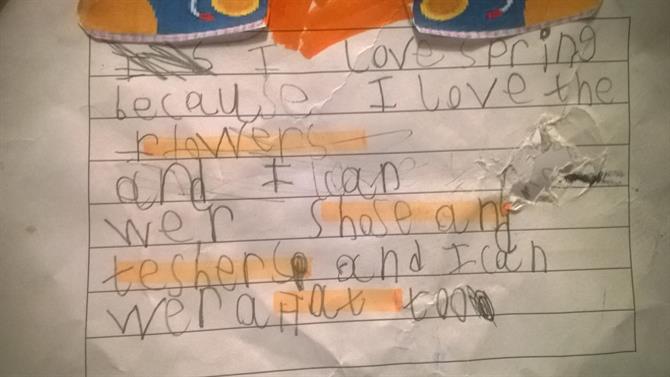 I love spring
because I love the
flowers
and I can
wer shose and
teshers and I can
wer a Hat too